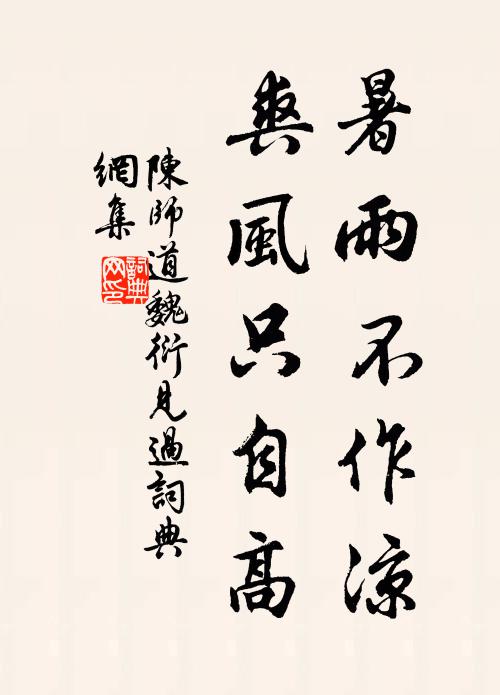 暑雨不作涼
爽風只自高
陳師道魏衍見過詞典
網集
詞典網印